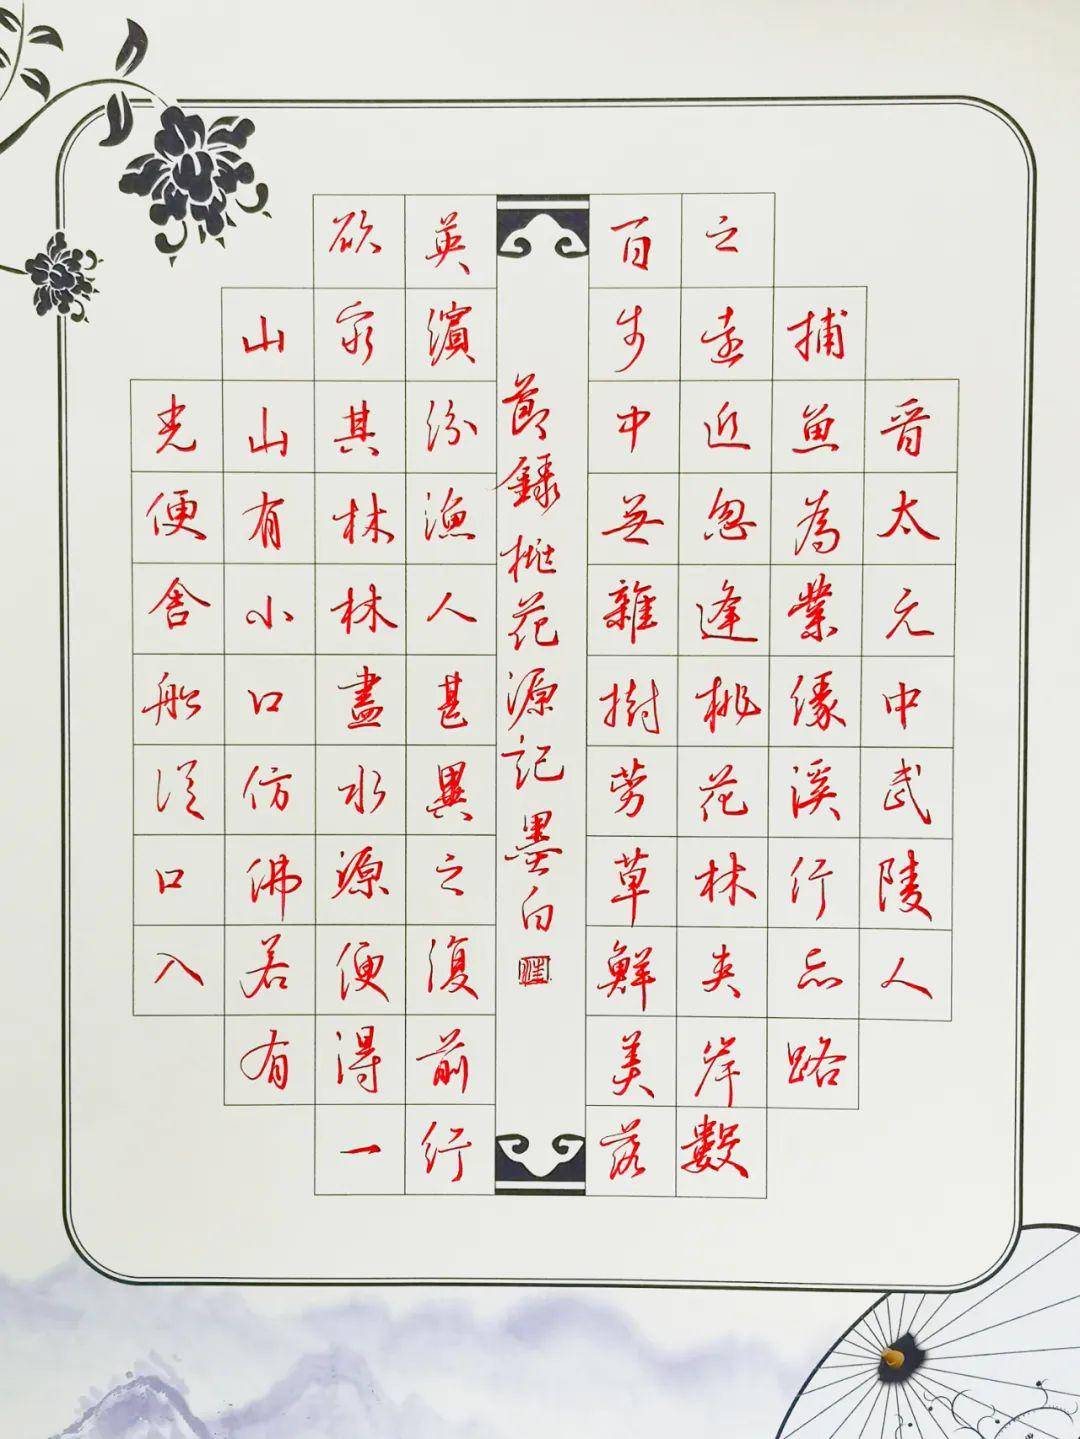 晋太元中武陵人
捕魚為業緣溪行忘路
之遠近忽逢桃花林夹岸數
百步中無雜樹芳草鮮美落
節錄桃花源記墨白
英繽紛漁人甚異之復前行
欲窮其林林盡水源便得一
山山有小口仿佛若有
光便舍船從口入